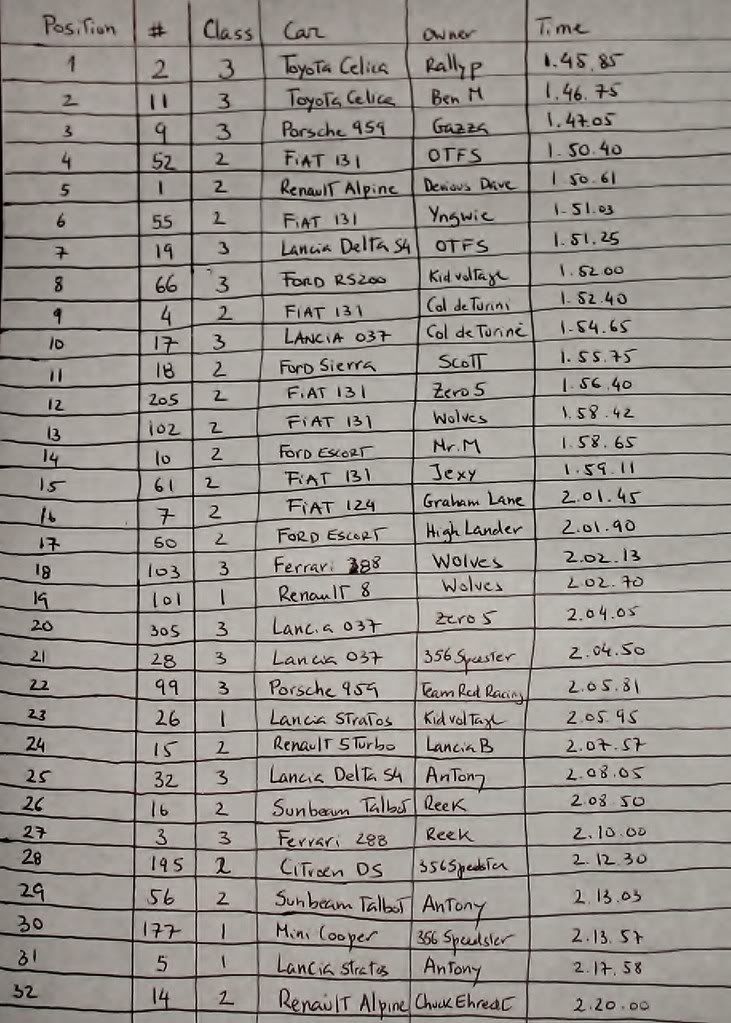 Position # Class Car Owner Time
1 2 3 Toyota Celica Rallyp 1.45.85
2 11 3 Toyota Celica Ben M 1.46.75
3 9 3 Porsche 959 Gazza 1.47.05
4 52 2 FiAT 131 OTFS 1.50.40
5 1 2 Renault Alpine Devious Dave 1.50.61
6 55 2 FiAT 131 Yngwie 1.51.03
7 19 3 Lancia Delta S4 OTFS 1.51.25
8 66 3 FORD RS200 Kidvoltage 1.52.00
9 4 2 FiAT 131 Col de Turini 1.52.40
10 17 3 LANCIA 037 Col de Turini 1.54.65
11 18 2 Ford Sierra Scott 1.55.75
12 205 2 FiAT 131 Zero 5 1.56.40
13 102 2 FiAT 131 Wolves 1.58.42
14 10 2 Ford ESCORT Mr.M 1.58.65
15 61 2 FiAT 131 Jexy 1.59.11
16 7 2 FiAT 124 Graham Lane 2.01.45
17 50 2 FORD ESCORT High Lander 2.01.90
18 103 3 Ferrari 288 Wolves 2.02.13
19 101 1 Renault 8 Wolves 2.02.70
20 305 3 Lancia 037 Zero 5 2.04.05
21 28 3 Lancia 037 356 Speester 2.04.50
22 99 3 Porsche 959 Team Red Racing 2.05.81
23 26 1 Lancia Stratos Kidvoltage 2.05.95
24 15 2 Renault 5 Turbo Lancia B 2.07.57
25 32 3 Lancia Delta S4 Antony 2.08.05
26 16 2 Sunbeam Talbot Reek 2.08.50
27 3 3 Ferrari 288 Reek 2.10.00
28 195 2 Citroen DS 356 Speedster 2.12.30
29 56 2 Sunbeam Talbot Antony 2.13.03
30 177 1 Mini Cooper 356 Speedster 2.13.57
31 5 1 Lancia Stratos Antony 2.17.58
32 14 2 Renault Alpine Chuck Ehredt 2.20.00